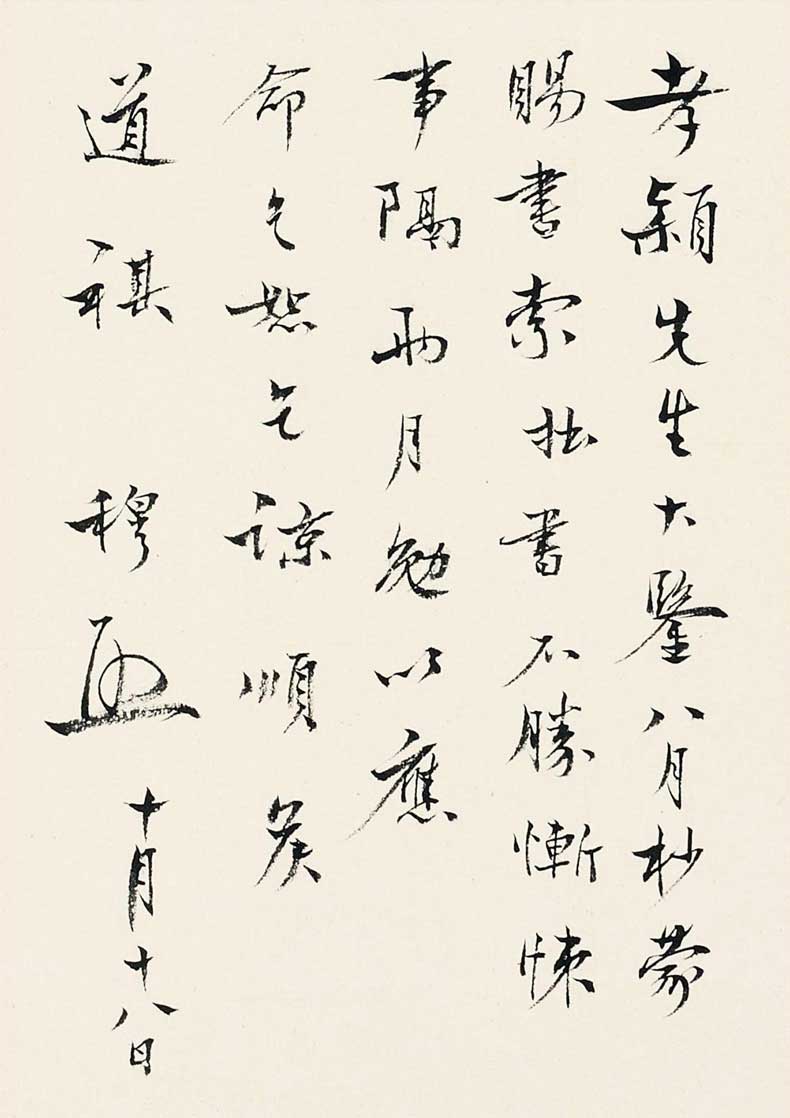 孝穎先生大鑒八月杪蒙
賜書索拙書不勝慚悚
事隔兩月勉以應
命乞恕乞諒順候
道祺 穆 十月十八日